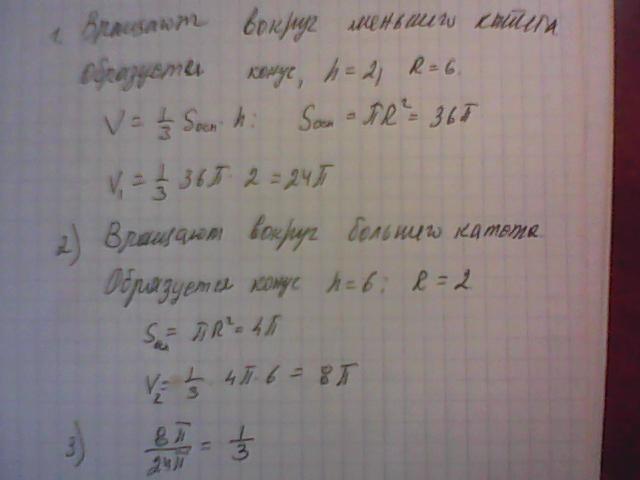 1. Вращают вокруг меньшего катета
Образуется конус, h = 2, R = 6.
V = 1/3 Sосн · h: Sосн = πR² = 36π
V₁ = 1/3 36π · 2 = 24π
2) Вращают вокруг большего катета.
Образуется конус h = 6; R = 2
Sосн = πR² = 4π
V₂ = 1/3 · 4π · 6 = 8π
3) 8π/24π = 1/3